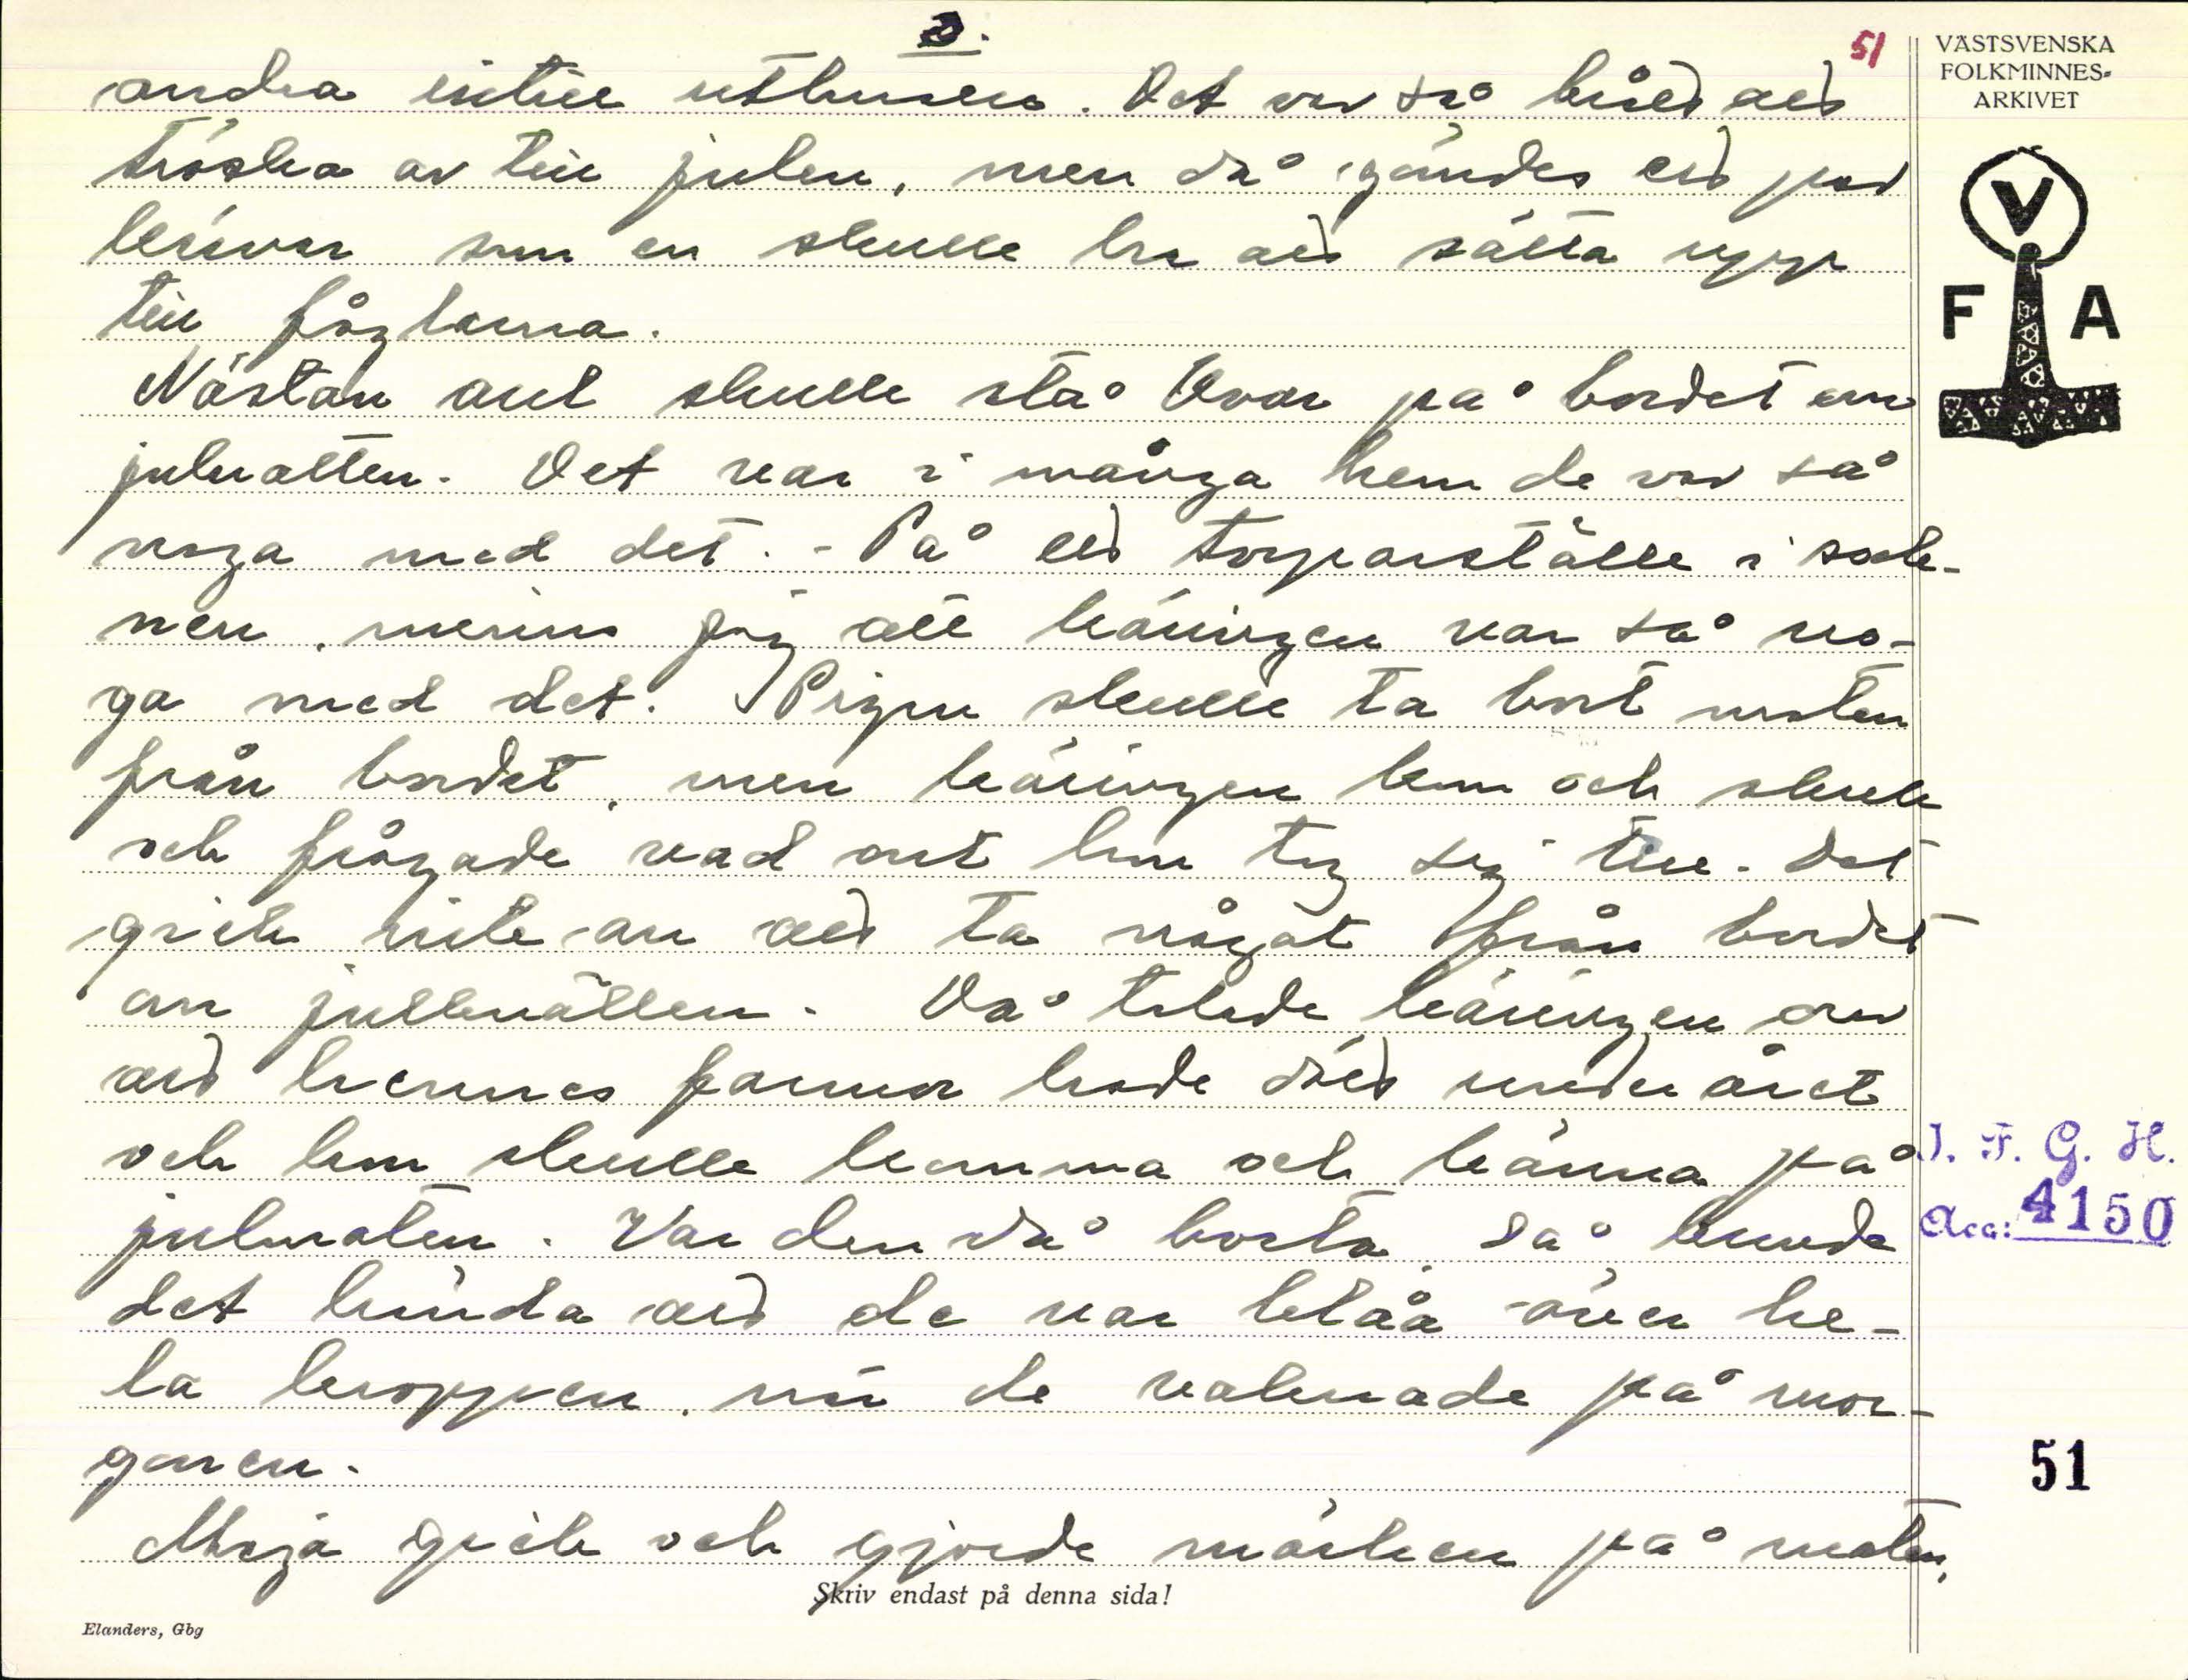 2.
51
VÄSTSVENSKA
FOLKMINNES-
ARKIVET
V
F A
andra intill uthusen. Det var så bråd att
tröska av till julen, men då gömdes ett par
kärvar som en skulle ha att sätta upp
till fåglarna.
Nästan allt skulle stå kvar på bordet om
julnatten. Det var i många hem de var så
noga med det. - På ett torparställe i sock-
nen, minns jag att käringen var så no-
ga med det. Pigan skulle ta bort maten
från bordet, men käringen kom och skrek
och frågade vad ont hon tog sig till. Det
gick inte an att ta något från bordet
om julkvällen. Då talade käringen om
att hennes farmor hade dött under året
och hon skulle komma och känna på
julmaten. Var den då borta så kunde
det hända att de var blåa över he-
la kroppen, när de vaknade på mor-
gonen.
Maja gick och gjorde märken på maten,
I. F. G. H.
Acc: 4150
51
Skriv endast på denna sida!
Elanders, Gbg